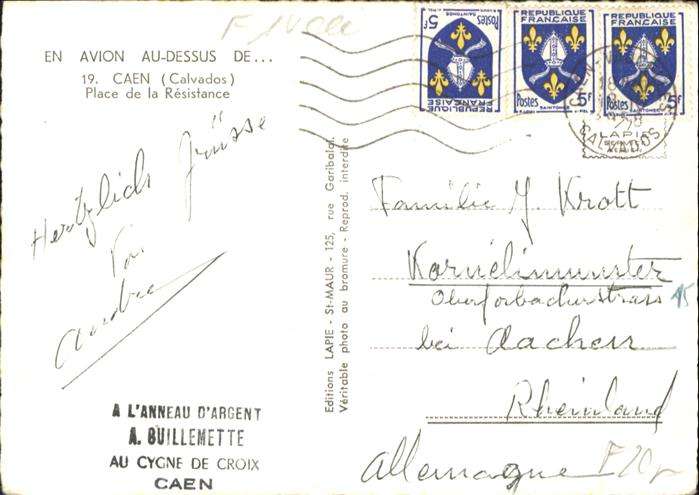 EN AVION AU-DESSUS DE...
19. CAEN (Calvados)
Place de la Résistance
Hertzlich Grüsse
Von
André
A L'ANNEAU D'ARGENT
A. GUILLEMETTE
AU CYGNE DE CROIX
CAEN
Editions LAPIE - St-MAUR - 125, rue Garibaldi.
Véritable photo au bromure - Reprod. interdite
5F
Postes
SAINTONGE
RÉPUBLIQUE
FRANÇAISE
RÉPUBLIQUE
FRANÇAISE
Postes 5F
SAINTONGE
RÉPUBLIQUE
FRANÇAISE
Postes 5F
SAINTONGE
CALVADOS
LAPIE
SERVICE
AÉRIEN
Familie J. Krott
Kornelimunster
Oberforbacherstrass 15
bei Aachen
Rheinland
Allemagne